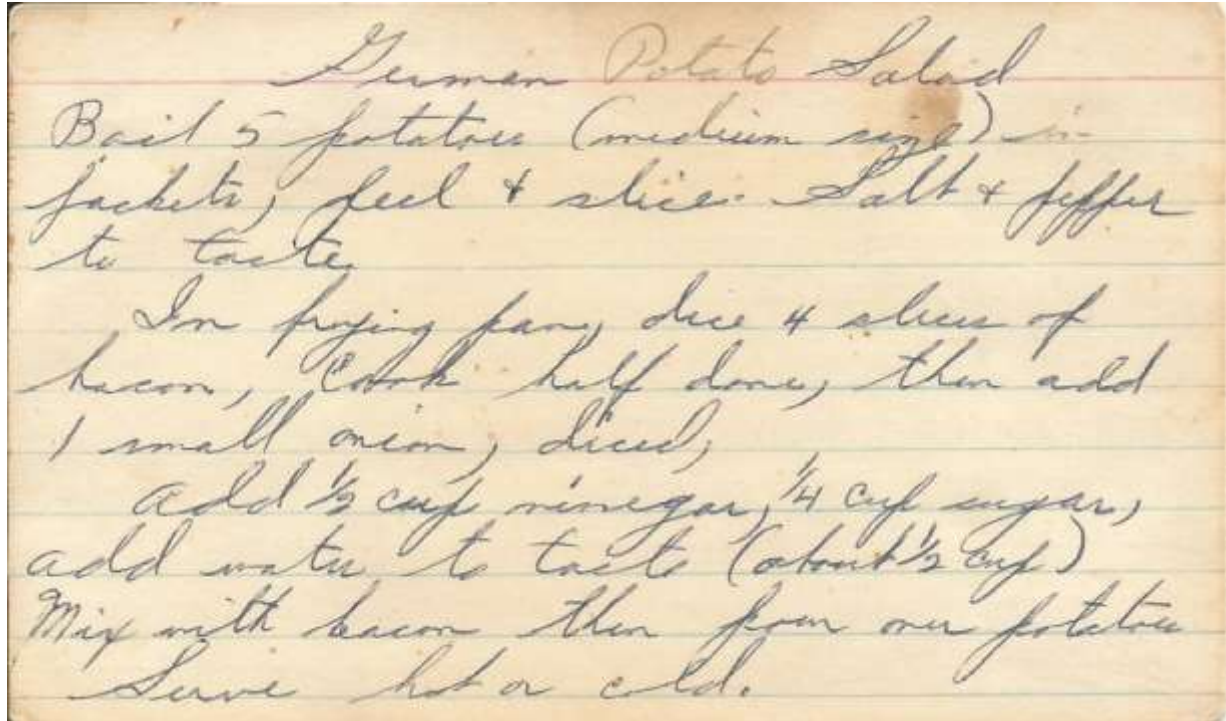 German Potato Salad
Boil 5 potatoes (medium size) in
jackets, peel + slice. Salt + pepper
to taste.
In frying pan, dice 4 slices of
bacon, cook half done, then add
1 small onion, diced,
add 1/2 cup vinegar, 1/4 cup sugar,
add water to taste (about 1/2 cup)
Mix with bacon then pour over potatoes
Serve hot or cold.